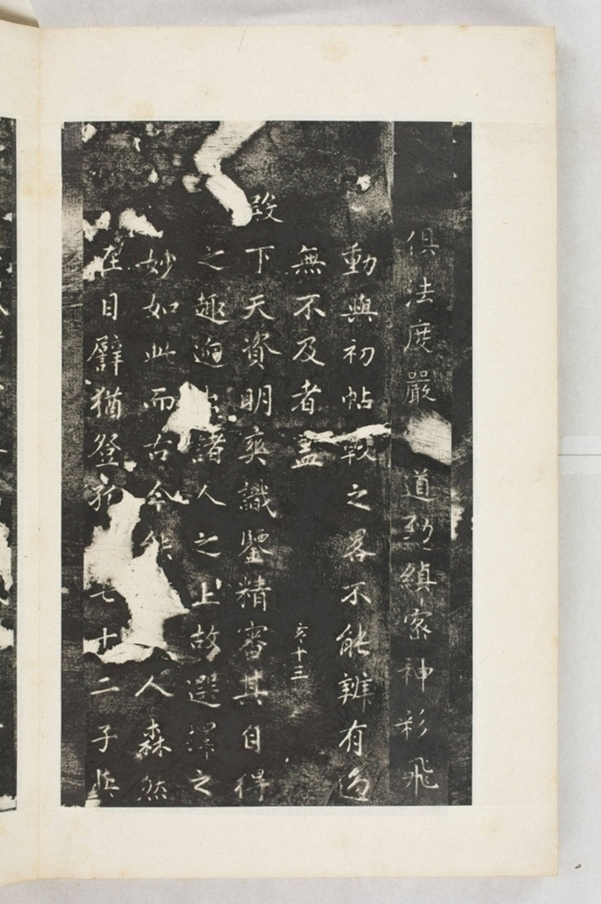 俱法度嚴 道勁縝密神彩飛
動與初帖較之畧不能辨有過
無不及者蓋
亥十三
殿下天資明奭識鑒精審其自得
之趣逈出諸人之上故選擇之
妙如此而古今 人森然
在目譬猶登 七十二子